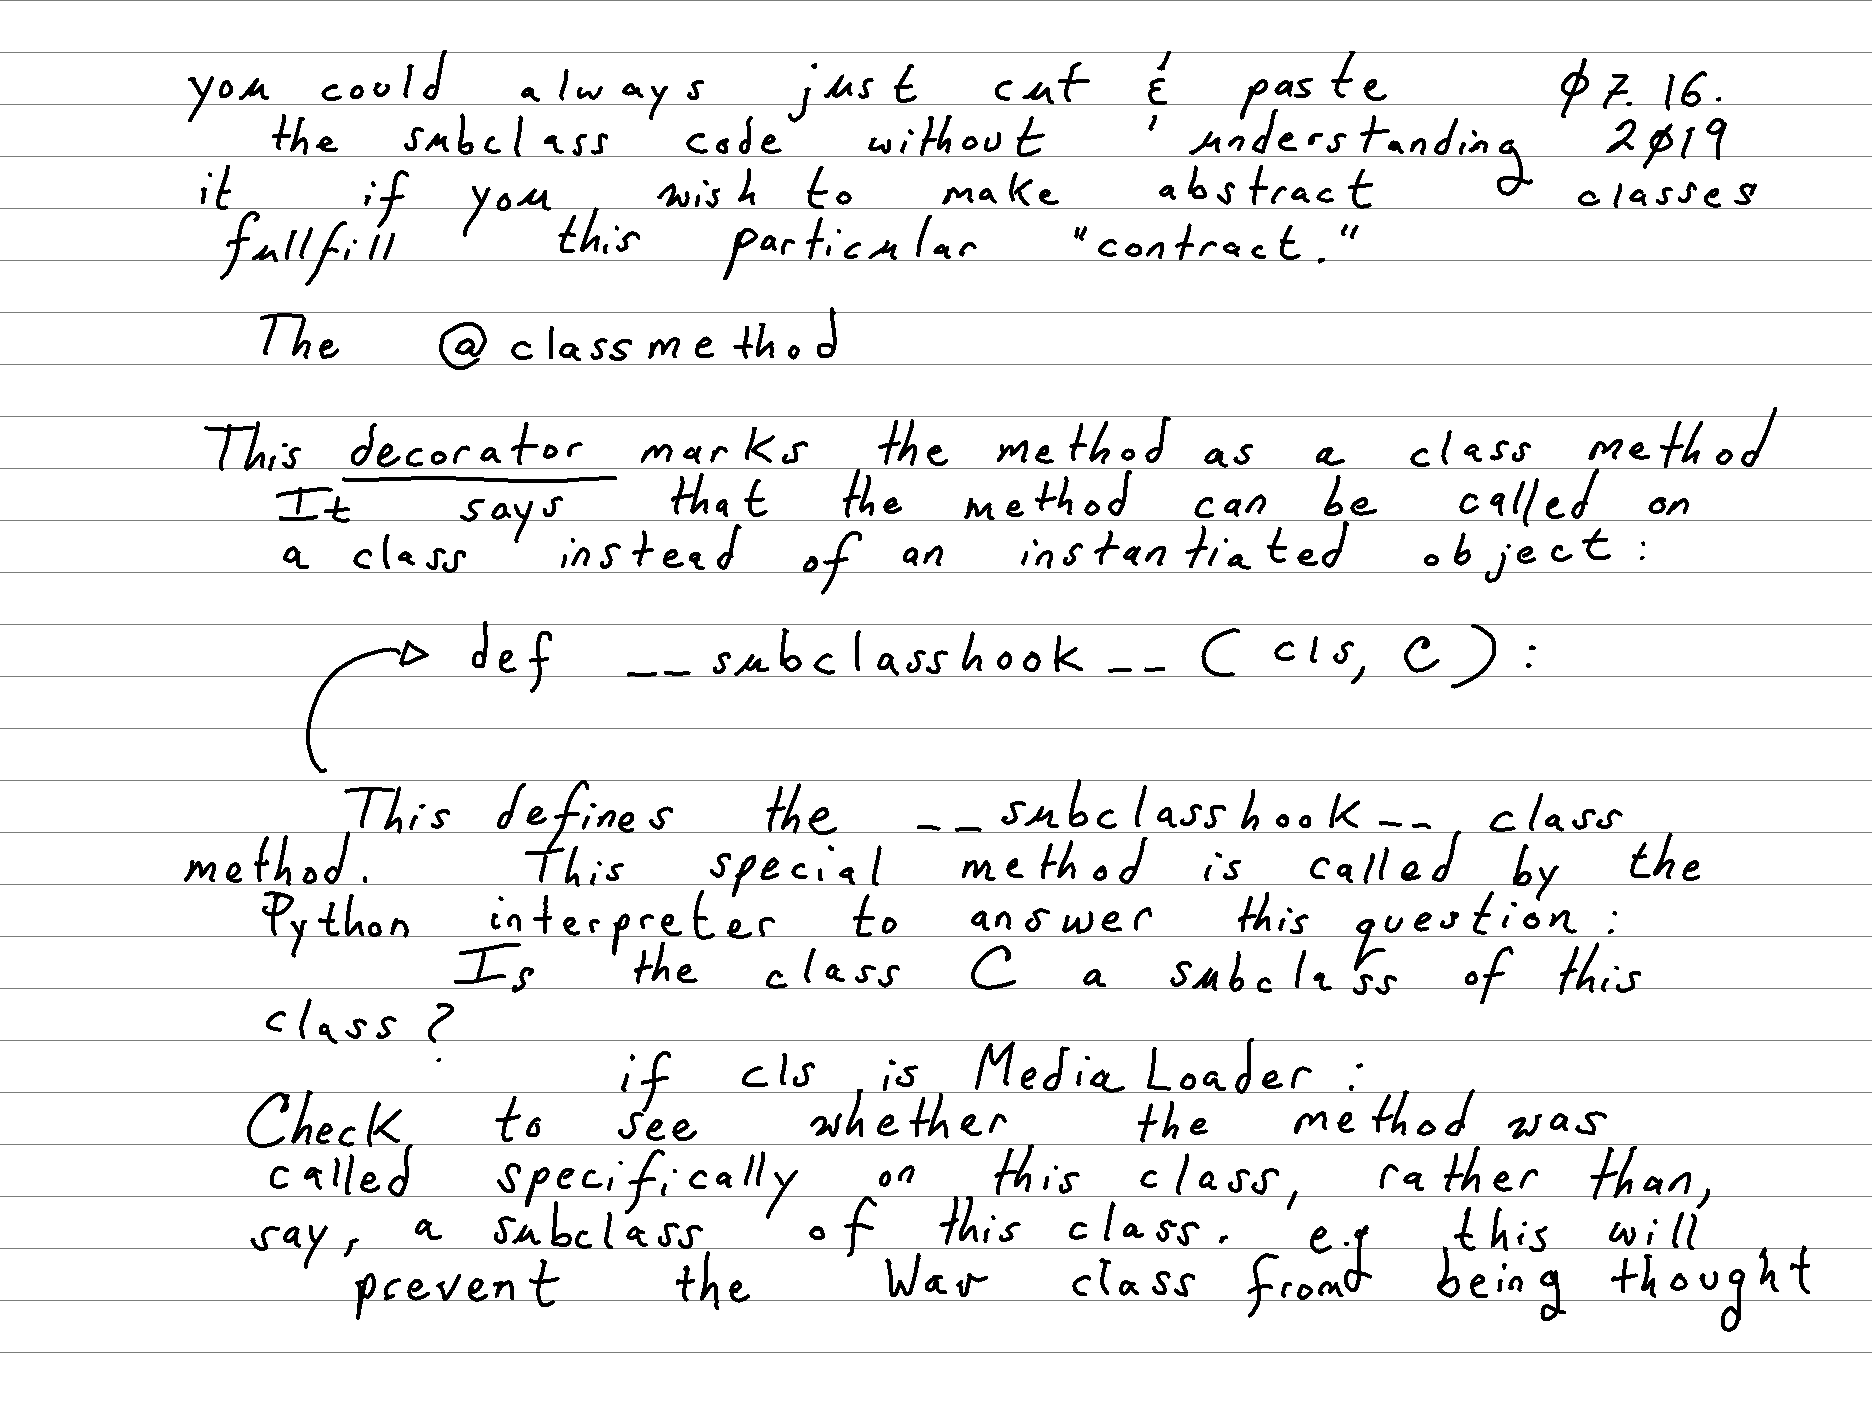 you could always just cut & paste ø7.16.
the subclass code without understanding 2ø19
it if you wish to make abstract classes
fullfill this particular "contract."
The @classmethod
This decorator marks the method as a class method
It says that the method can be called on
a class instead of an instantiated object:
def __subclasshook__(cls, C):
This defines the __subclasshook__ class
method. This special method is called by the
Python interpreter to answer this question:
Is the class C a subclass of this
class?
if cls is MediaLoader:
Check to see whether the method was
called specifically on this class, rather than,
say, a subclass of this class. e.g this will
prevent the Wav class from being thought